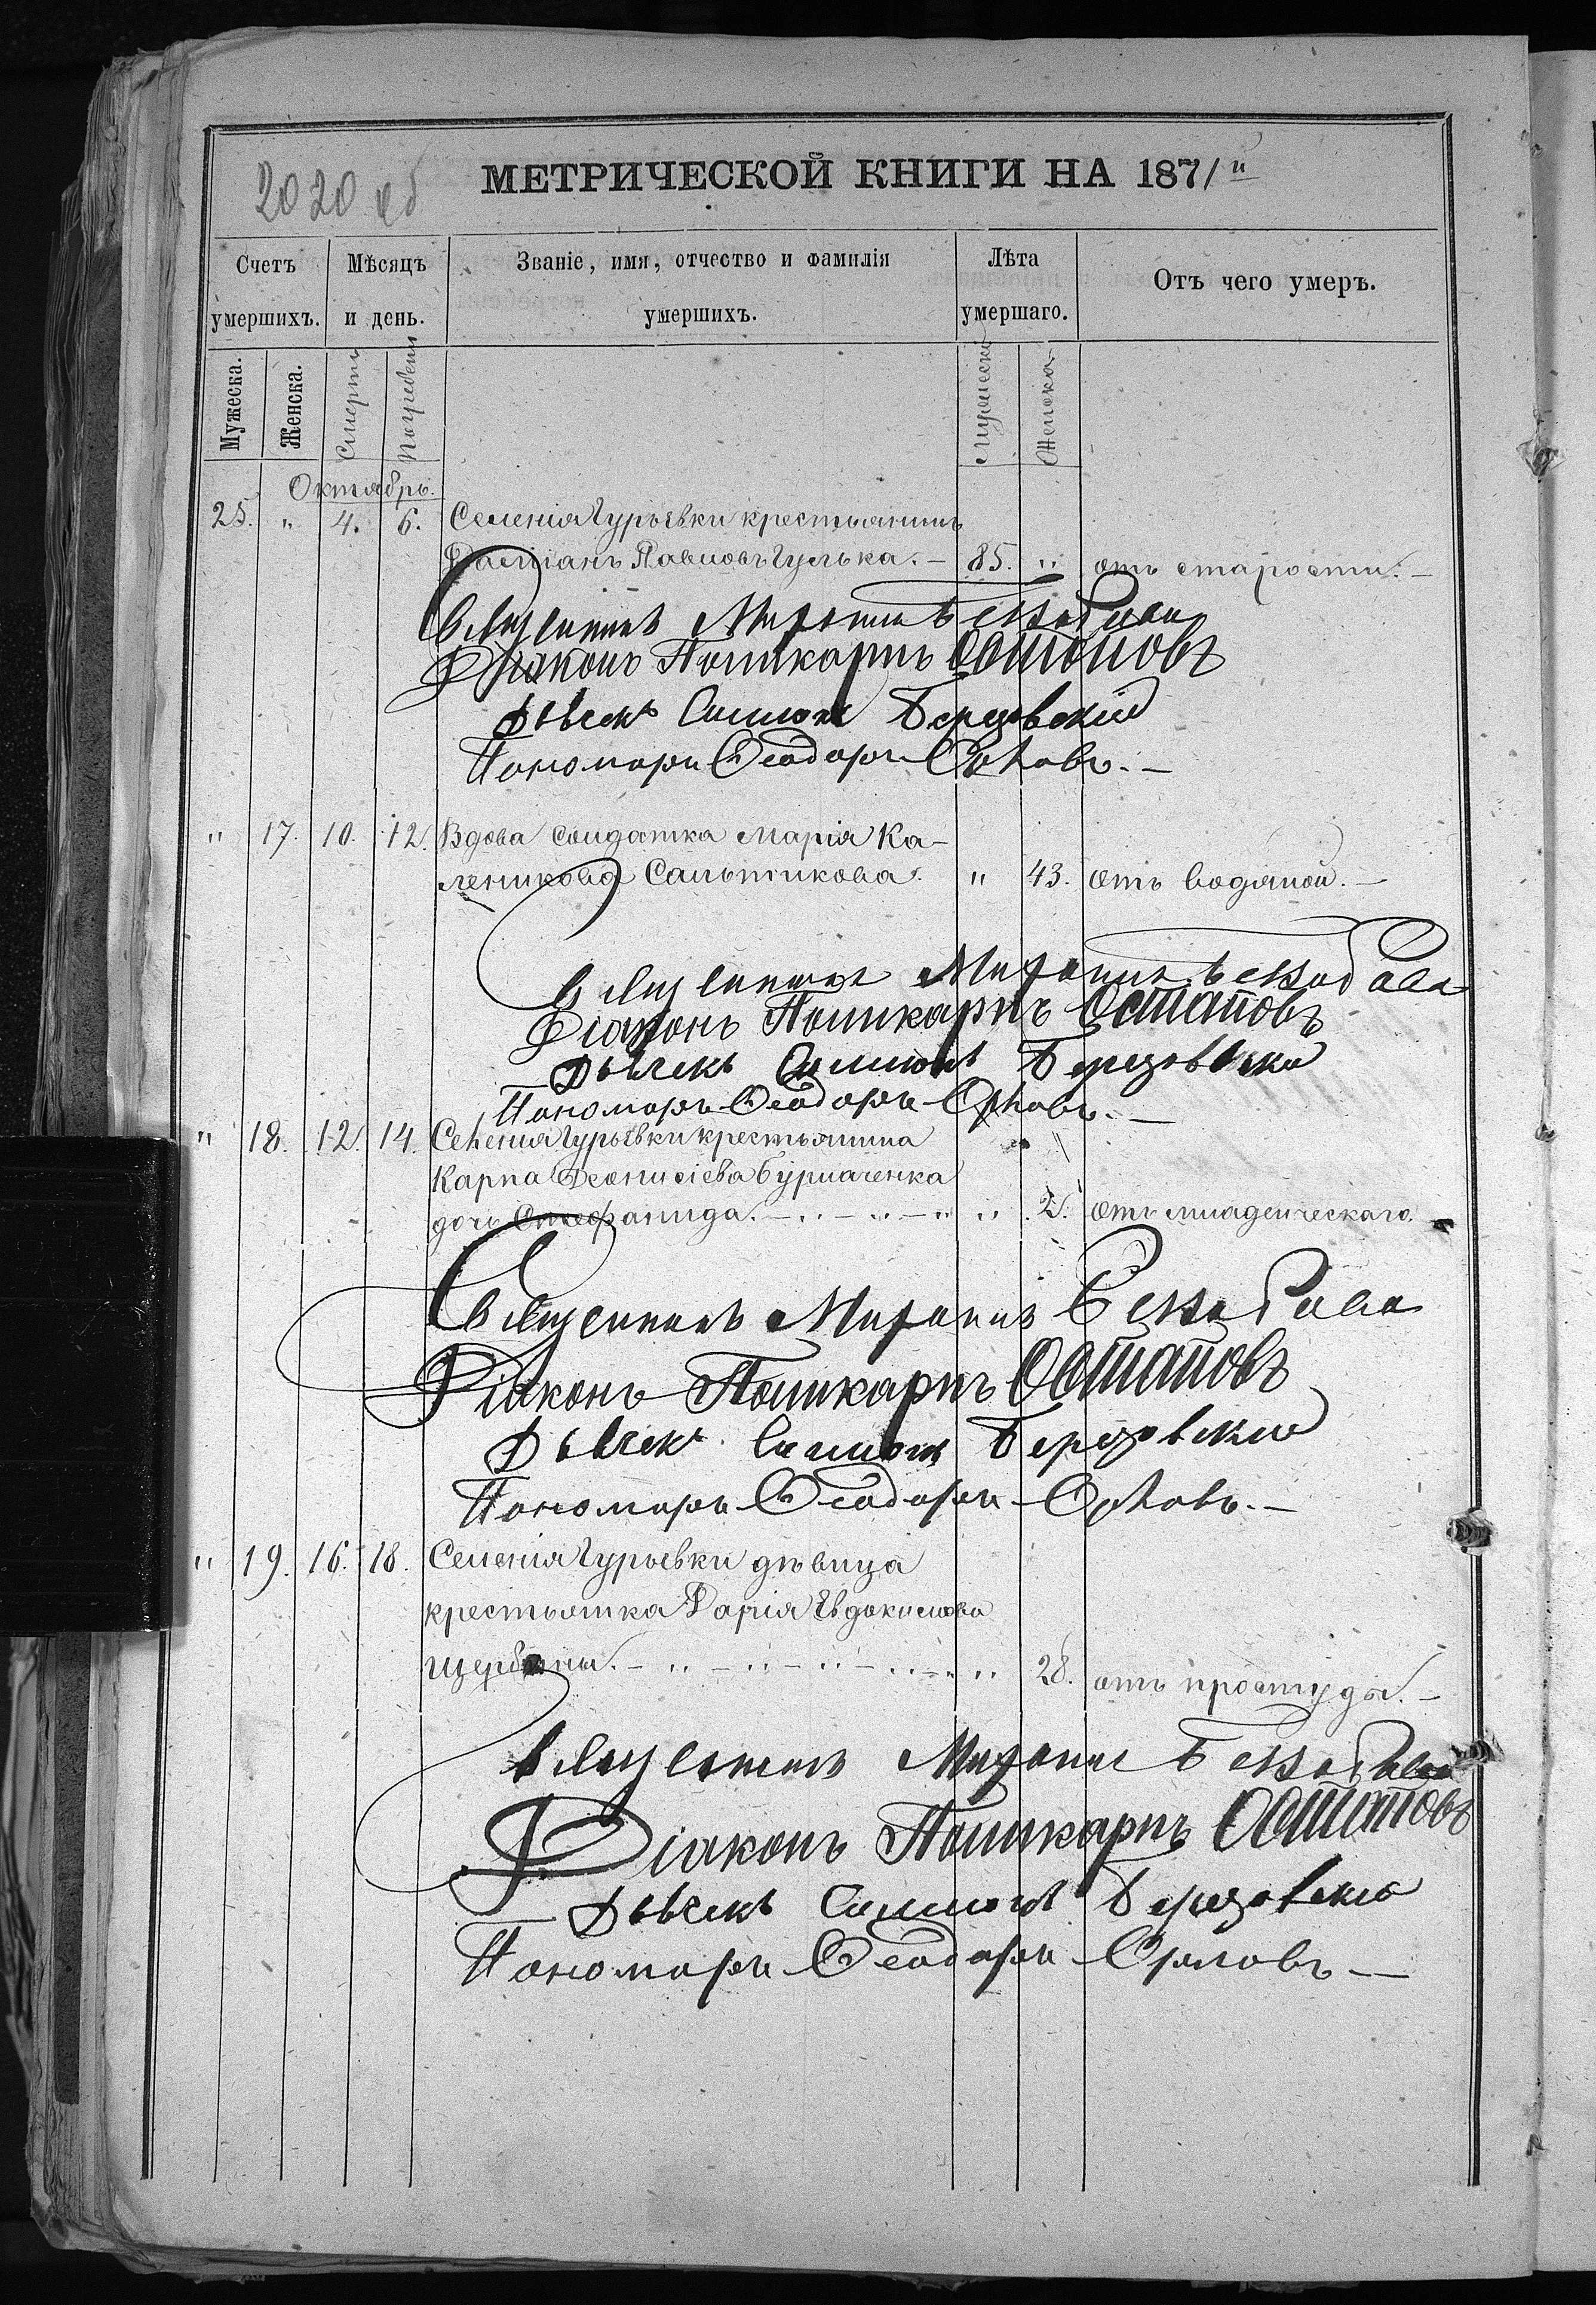 2020 об
МЕТРИЧЕСКОЙ КНИГИ НА 1871й
Счетъ умершихъ.
Мѣсяцъ и день.
Званіе, имя, отчество и фамилія умершихъ.
Лѣта умершаго.
Отъ чего умеръ.
Мужеска. Женска. Смерти Погребенія Мужеска Женска
Октябрь.
25. " 4. 6. Селенія Гурьевки крестьянинъ
Даміанъ Павловъ Гулька. — 85. " отъ старости. —
Священникъ Митрофанъ
Діаконъ Поликарпъ Остаповъ
Дьячекъ Симеонъ Березовскій
Пономарь Ѳеодоръ Орловъ. —
" 17. 10. 12. Вдова солдатка Марія Ка-
леникова Сальникова. " 43. отъ водяной. —
Священникъ Митрофанъ
Діаконъ Поликарпъ Остаповъ
Дьячекъ Симеонъ Березовскій
Пономарь Ѳеодоръ Орловъ. —
" 18. 12. 14. Селенія Гурьевки крестьянина
Карпа Діонисіева Бурлаченка
дочь Стефанида. — " — " — " " 2. отъ младенческаго.
Священникъ Митрофанъ
Діаконъ Поликарпъ Остаповъ
Дьячекъ Симеонъ Березовскій
Пономарь Ѳеодоръ Орловъ. —
" 19. 16. 18. Селенія Гурьевки дѣвица
крестьянка Дарія Евдокимова
— " — " — " — " — " 28. отъ простуды. —
Священникъ Митрофанъ
Діаконъ Поликарпъ Остаповъ
Дьячекъ Симеонъ Березовскій
Пономарь Ѳеодоръ Орловъ —